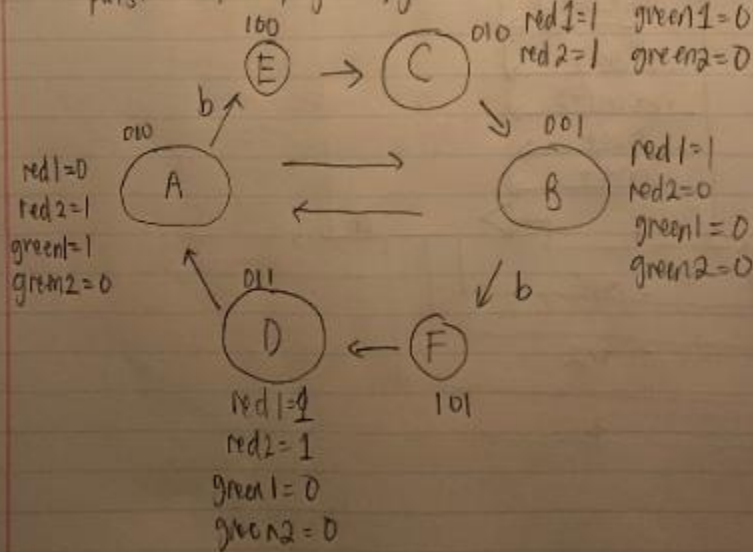 100
E
C
010
red1=1 green1=0
red2=1 green2=0
b
010
A
red1=0
red2=1
green1=1
green2=0
001
B
red1=1
red2=0
green1=0
green2=0
b
011
D
F
101
red1=1
red2=1
green1=0
green2=0